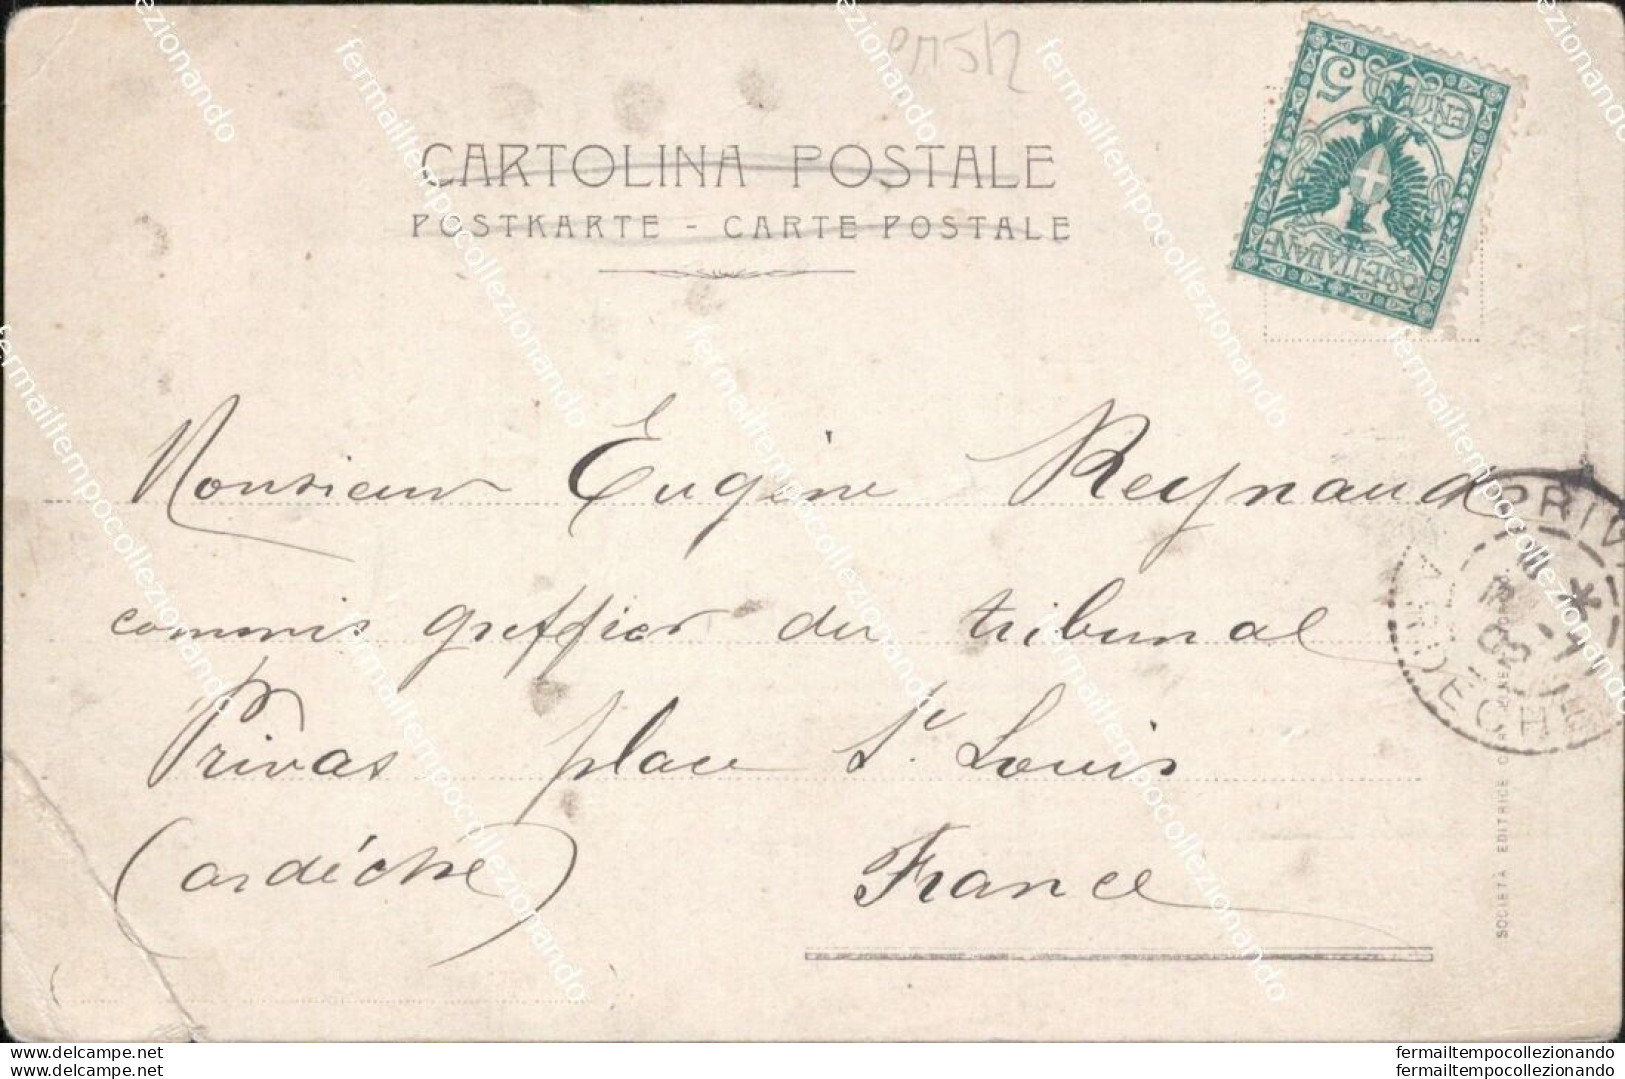 CARTOLINA POSTALE
POSTKARTE - CARTE POSTALE
CENT 5
POSTE ITALIANE
Monsieur Eugène Reynaud
commis greffier du tribunal
Privas place St. Louis
(ardèche) France
ARDECH
SOCIETÀ EDITRICE
fermailtempocollezionando
www.delcampe.net fermailtempocollezionando
www.delcampe.net fermailtempocollezionando